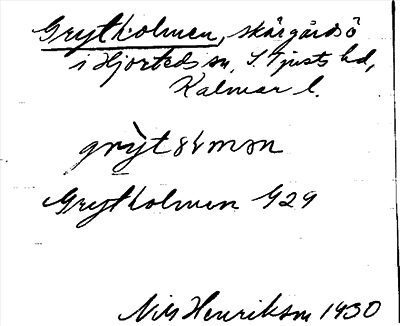 Grytholmen, skärgårdsö
i Hjorteds sn, S. Tjusts hd,
Kalmar l.
Grytholmen G29
Nils Henrikson 1930